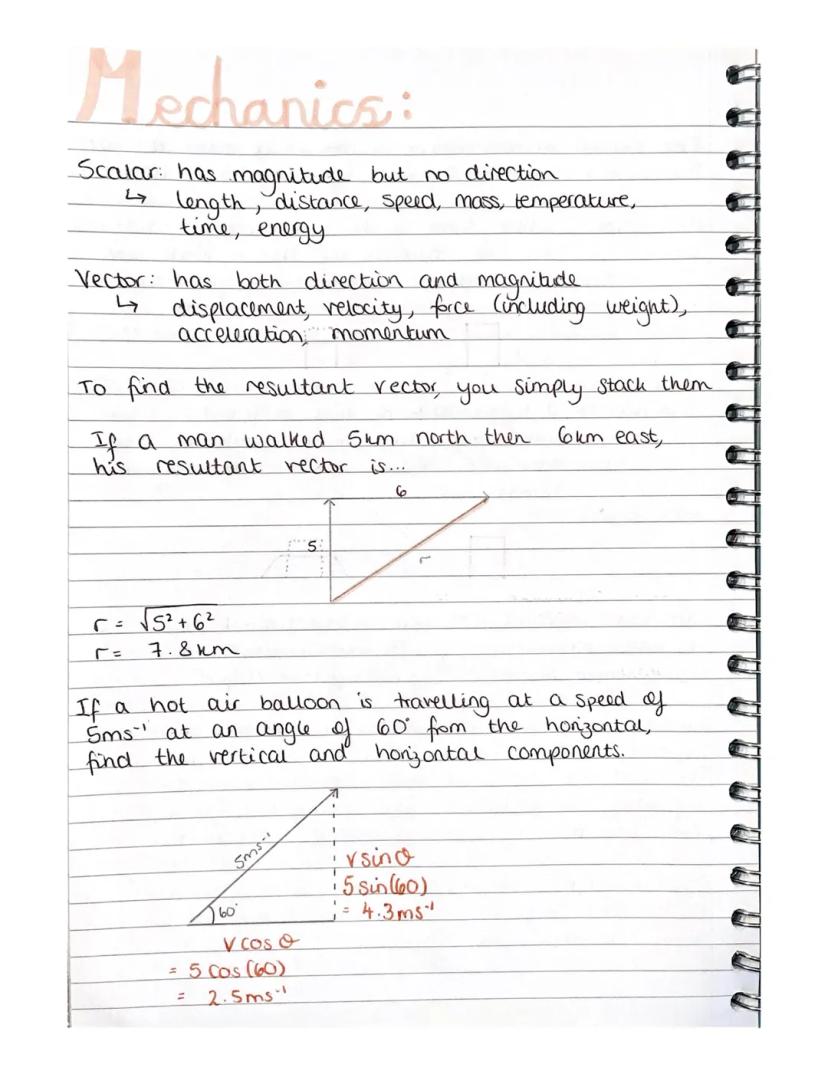 Mechanics:
Scalar: has magnitude but no direction
↳ length, distance, speed, mass, temperature,
time, energy
Vector: has both direction and magnitude
↳ displacement, velocity, force (including weight),
acceleration, momentum
To find the resultant vector, you simply stack them
If a man walked 5km north then 6km east,
his resultant vector is...
6
5
r
r = √5² + 6²
r = 7.8km
If a hot air balloon is travelling at a speed of
5ms⁻¹ at an angle of 60° from the horizontal,
find the vertical and horizontal components.
5ms⁻¹
60°
v sin θ
5 sin(60)
= 4.3ms⁻¹
v cos θ
= 5 cos (60)
= 2.5ms⁻¹